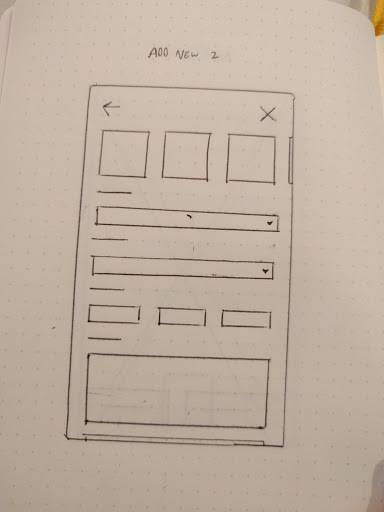 ADD NEW 2